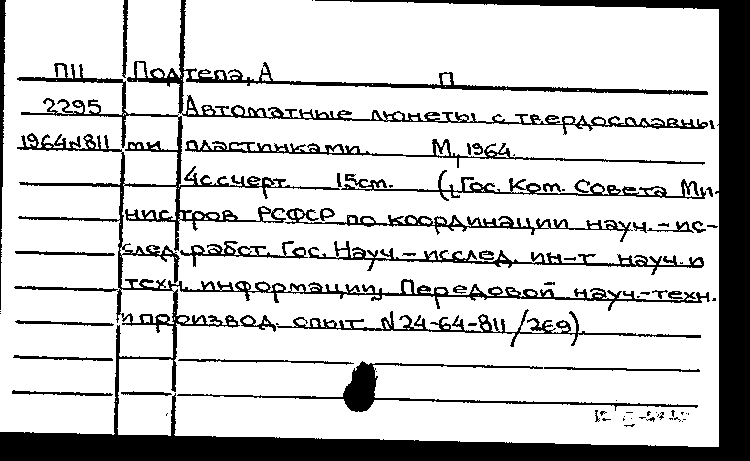 П11 Подтепа, А П
2295 Автоматные люнеты с твердосплавны-
1964N811 ми пластинками. М, 1964.
4с счерт. 15см. (Гос. Ком. Совета Ми-
нистров РСФСР по координации науч.-ис-
след. работ. Гос. Науч.-исслед. ин-т науч. и
техн. информации, Передовой науч.-техн.
и производ. опыт. N24-64-811/269).